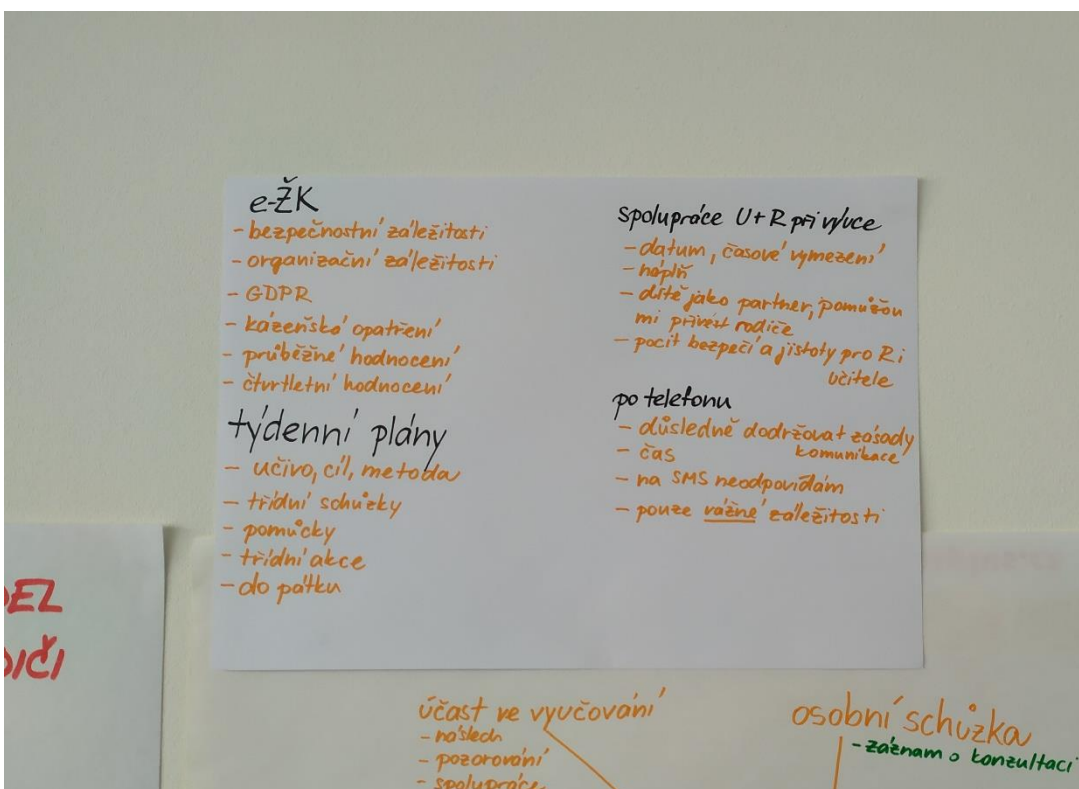 e-ŽK
- bezpečnostní záležitosti
- organizační záležitosti
- GDPR
- kázeňská opatření
- průběžné hodnocení
- čtvrtletní hodnocení
týdenní plány
- učivo, cíl, metoda
- třídní schůzky
- pomůcky
- třídní akce
- do pátku
spolupráce U+R při výuce
- datum, časové vymezení
- náplň
- dítě jako partner, pomůžou
mi přivést rodiče
- pocit bezpečí a jistoty pro R i
učitele
po telefonu
- důsledně dodržovat zásady
komunikace
- čas
- na SMS neodpovídám
- pouze vážné záležitosti
DEL
DIČI
účast ve vyučování
- náslech
- pozorování
- spolupráce
osobní schůzka
- záznam o konzultaci